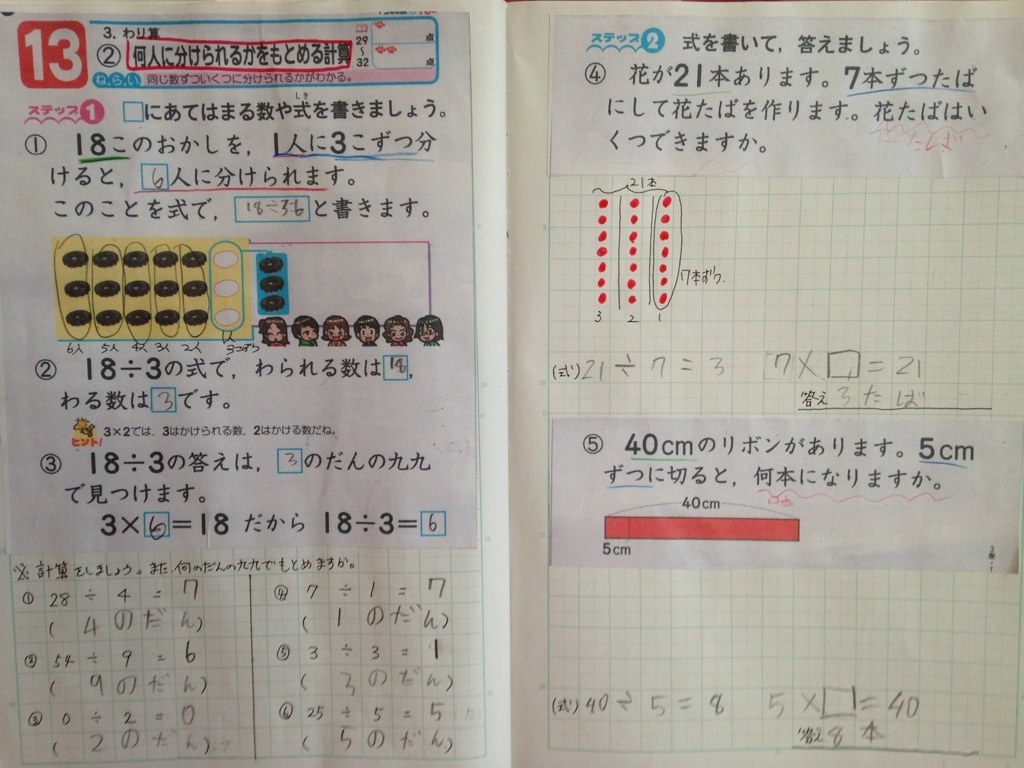 13
3. わり算
② 何人に分けられるかをもとめる計算
ねらい 同じ数ずついくつに分けられるかがわかる。
29
〜
32
点
点
ステップ1 □にあてはまる数や式を書きましょう。
しき
① 18このおかしを，1人に3こずつ分
けると，6人に分けられます。
このことを式で，18÷3=6と書きます。
6人 5人 4人 3人 2人 1人
3こずつ
② 18÷3の式で，わられる数は18，
わる数は3です。
ヒント! 3×2では，3はかけられる数，2はかける数だね。
③ 18÷3の答えは，3のだんの九九
で見つけます。
3×6=18 だから 18÷3=6
※計算をしましょう。また、何のだんの九九でもとめますか。
① 28 ÷ 4 = 7
( 4のだん)
③ 54 ÷ 9 = 6
( 9のだん)
② 0 ÷ 2 = 0
( 2のだん)
④ 7 ÷ 1 = 7
( 1のだん)
⑤ 3 ÷ 3 = 1
( 3のだん)
⑥ 25 ÷ 5 = 5
( 5のだん)
ステップ2 式を書いて，答えましょう。
④ 花が21本あります。7本ずつたば
にして花たばを作ります。花たばはい
くつできますか。
21本
7本ずつ
3 2 1
(式) 21 ÷ 7 = 3 7×□=21
答え 3たば
⑤ 40cmのリボンがあります。5cm
ずつに切ると，何本になりますか。
40cm
5cm
(式) 40 ÷ 5 = 8 5×□=40
答え 8本